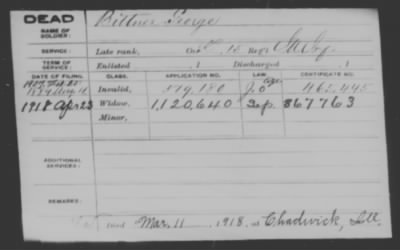 DEAD
NAME OF SOLDIER: Bittner George
SERVICE: Late rank, Co. Reg't
TERM OF SERVICE: Enlisted , 1 Discharged , 1
DATE OF FILING. CLASS. APPLICATION NO. LAW. CERTIFICATE NO.
Invalid, 519,180 462,445
1918 Apr 23 Widow, 1,120,640 Sep. 867763
Minor,
ADDITIONAL SERVICES:
REMARKS:
Mar. 11, 1918, at Chadwick, Ill.